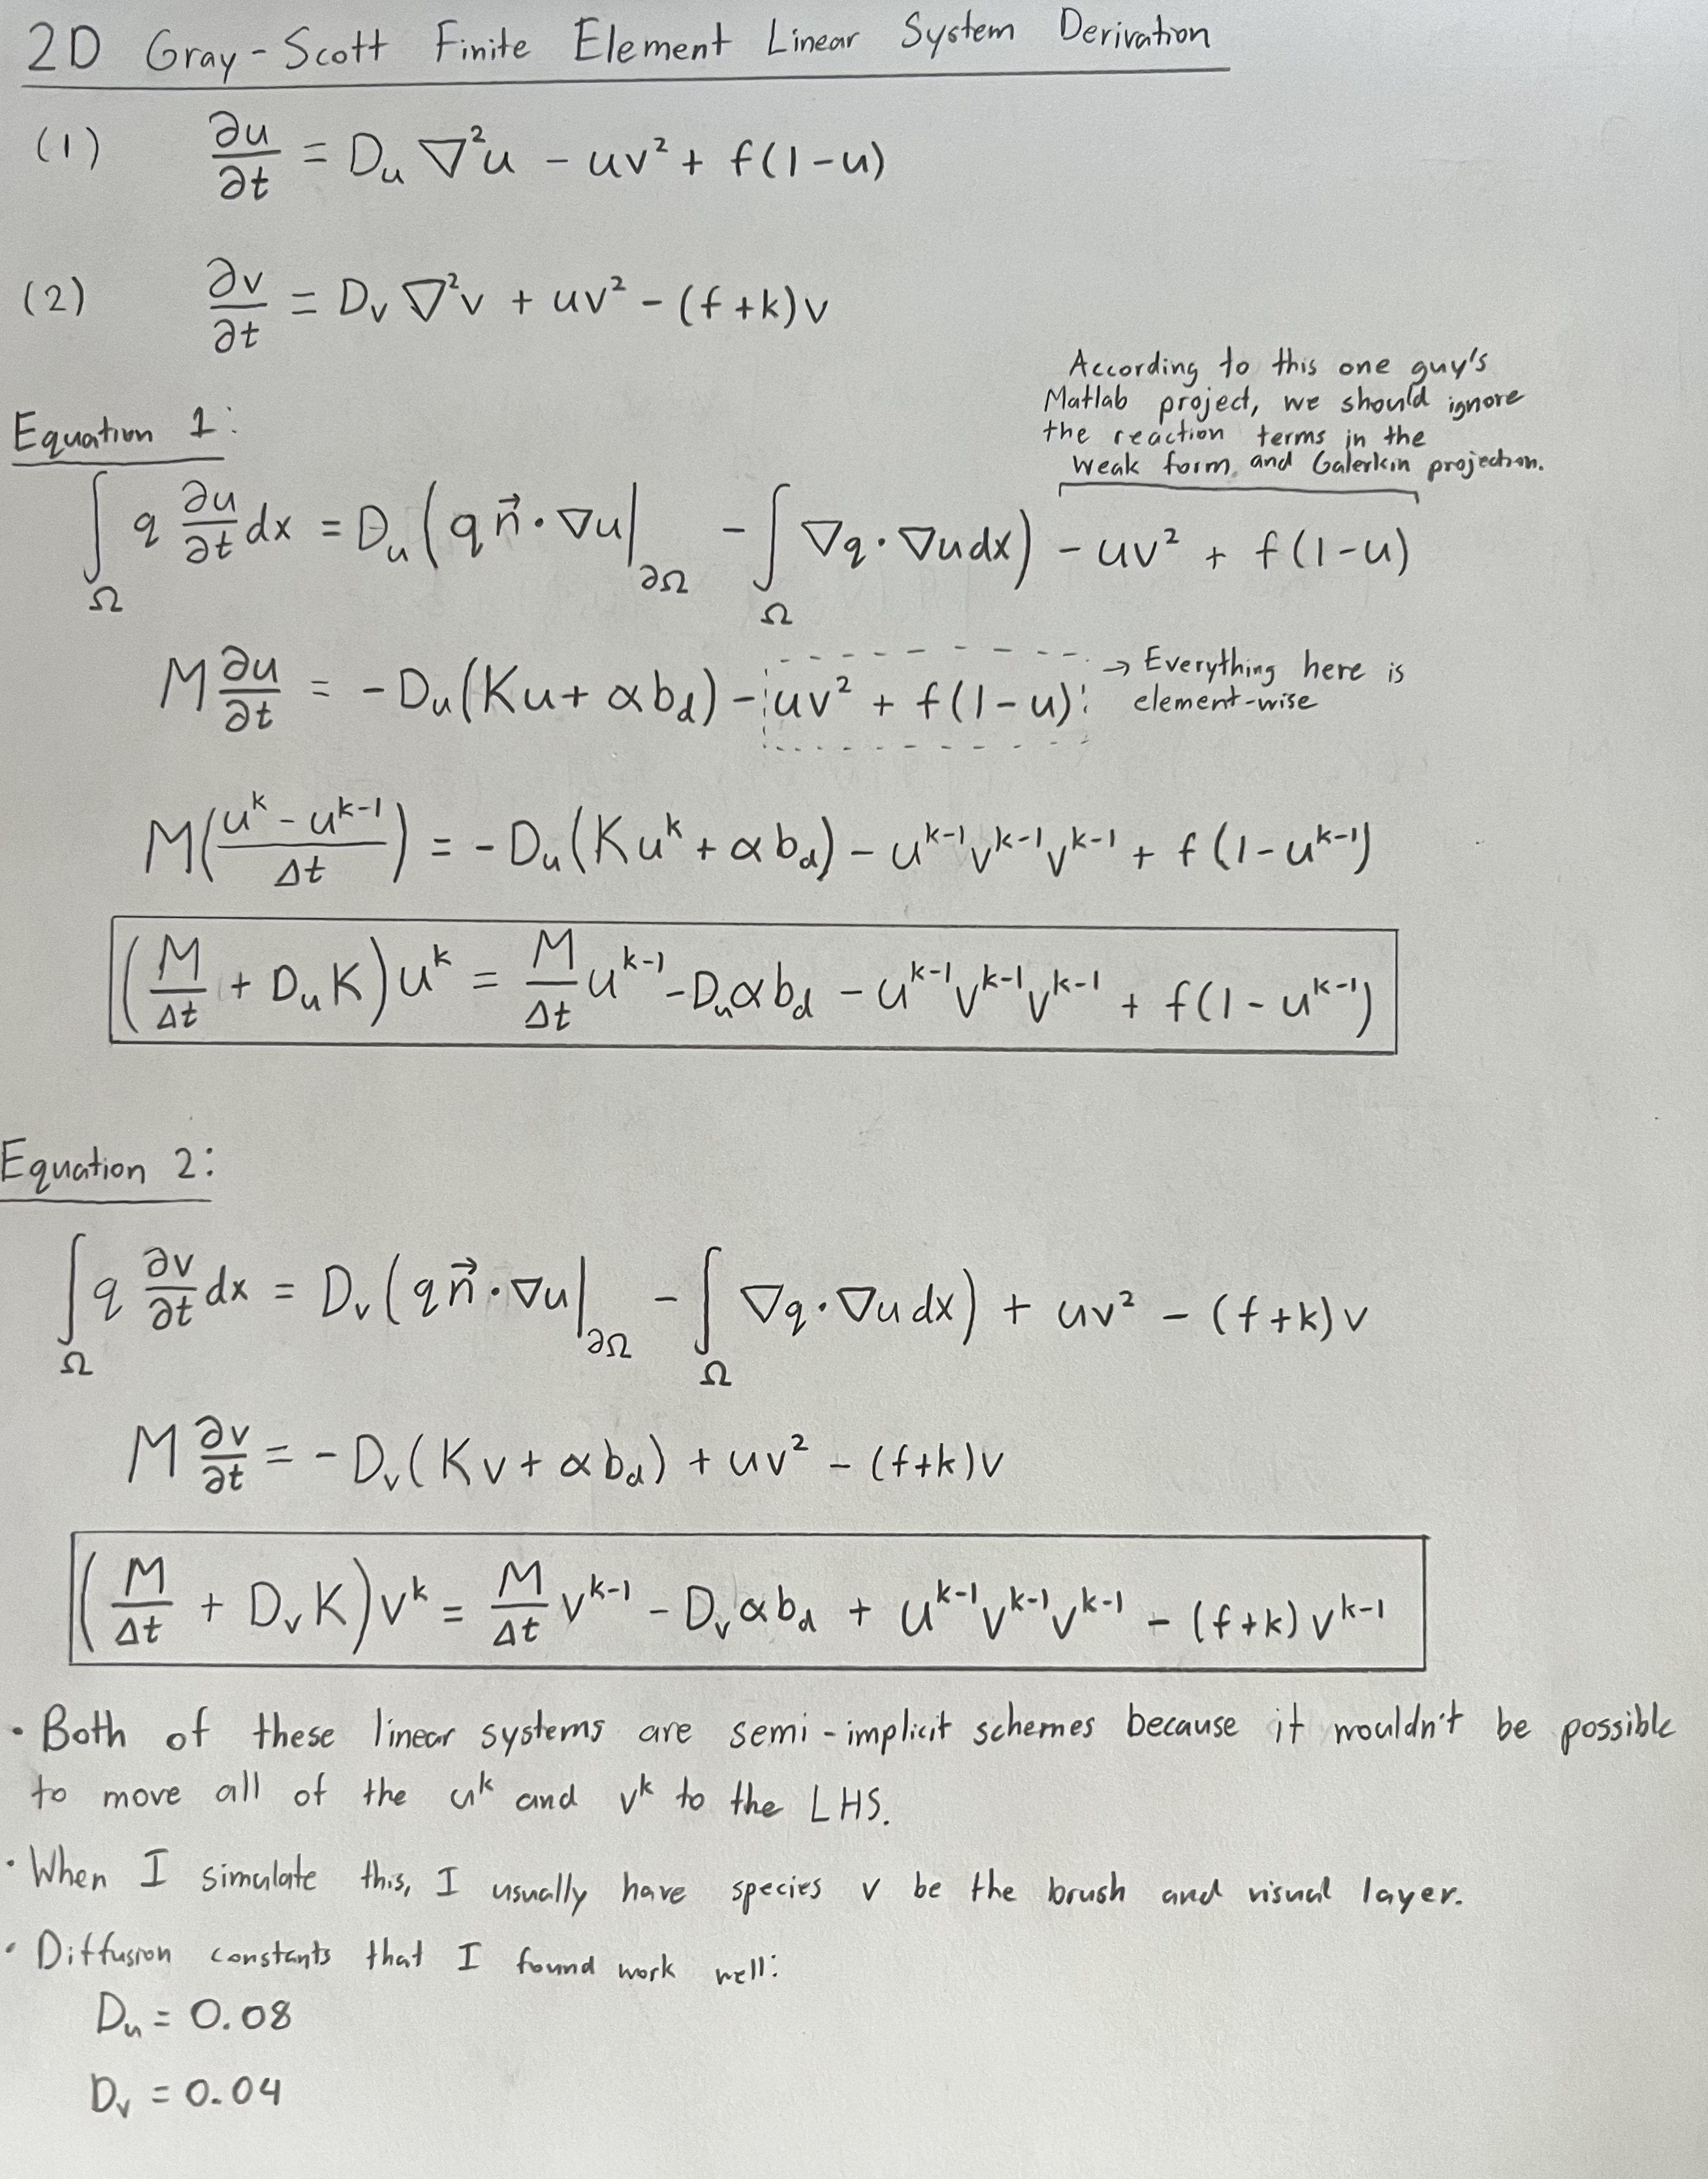 2D Gray-Scott Finite Element Linear System Derivation
(1) ∂u/∂t = D_u ∇²u - uv² + f(1-u)
(2) ∂v/∂t = D_v ∇²v + uv² - (f+k)v
According to this one guy's
Matlab project, we should ignore
the reaction terms in the
weak form and Galerkin projection.
Equation 1:
∫_Ω q ∂u/∂t dx = D_u (q n⃗·∇u|_∂Ω - ∫_Ω ∇q·∇u dx) - uv² + f(1-u)
M ∂u/∂t = -D_u(Ku + αb_d) - uv² + f(1-u) → Everything here is
element-wise
M((u^k - u^{k-1})/Δt) = -D_u(Ku^k + αb_d) - u^{k-1}v^{k-1}v^{k-1} + f(1-u^{k-1})
(M/Δt + D_u K)u^k = M/Δt u^{k-1} - D_u αb_d - u^{k-1}v^{k-1}v^{k-1} + f(1-u^{k-1})
Equation 2:
∫_Ω q ∂v/∂t dx = D_v (q n⃗·∇u|_∂Ω - ∫_Ω ∇q·∇u dx) + uv² - (f+k)v
M ∂v/∂t = -D_v(Kv + αb_d) + uv² - (f+k)v
(M/Δt + D_v K)v^k = M/Δt v^{k-1} - D_v αb_d + u^{k-1}v^{k-1}v^{k-1} - (f+k)v^{k-1}
• Both of these linear systems are semi-implicit schemes because it wouldn't be possible
to move all of the u^k and v^k to the LHS.
• When I simulate this, I usually have species v be the brush and visual layer.
• Diffusion constants that I found work well:
D_u = 0.08
D_v = 0.04